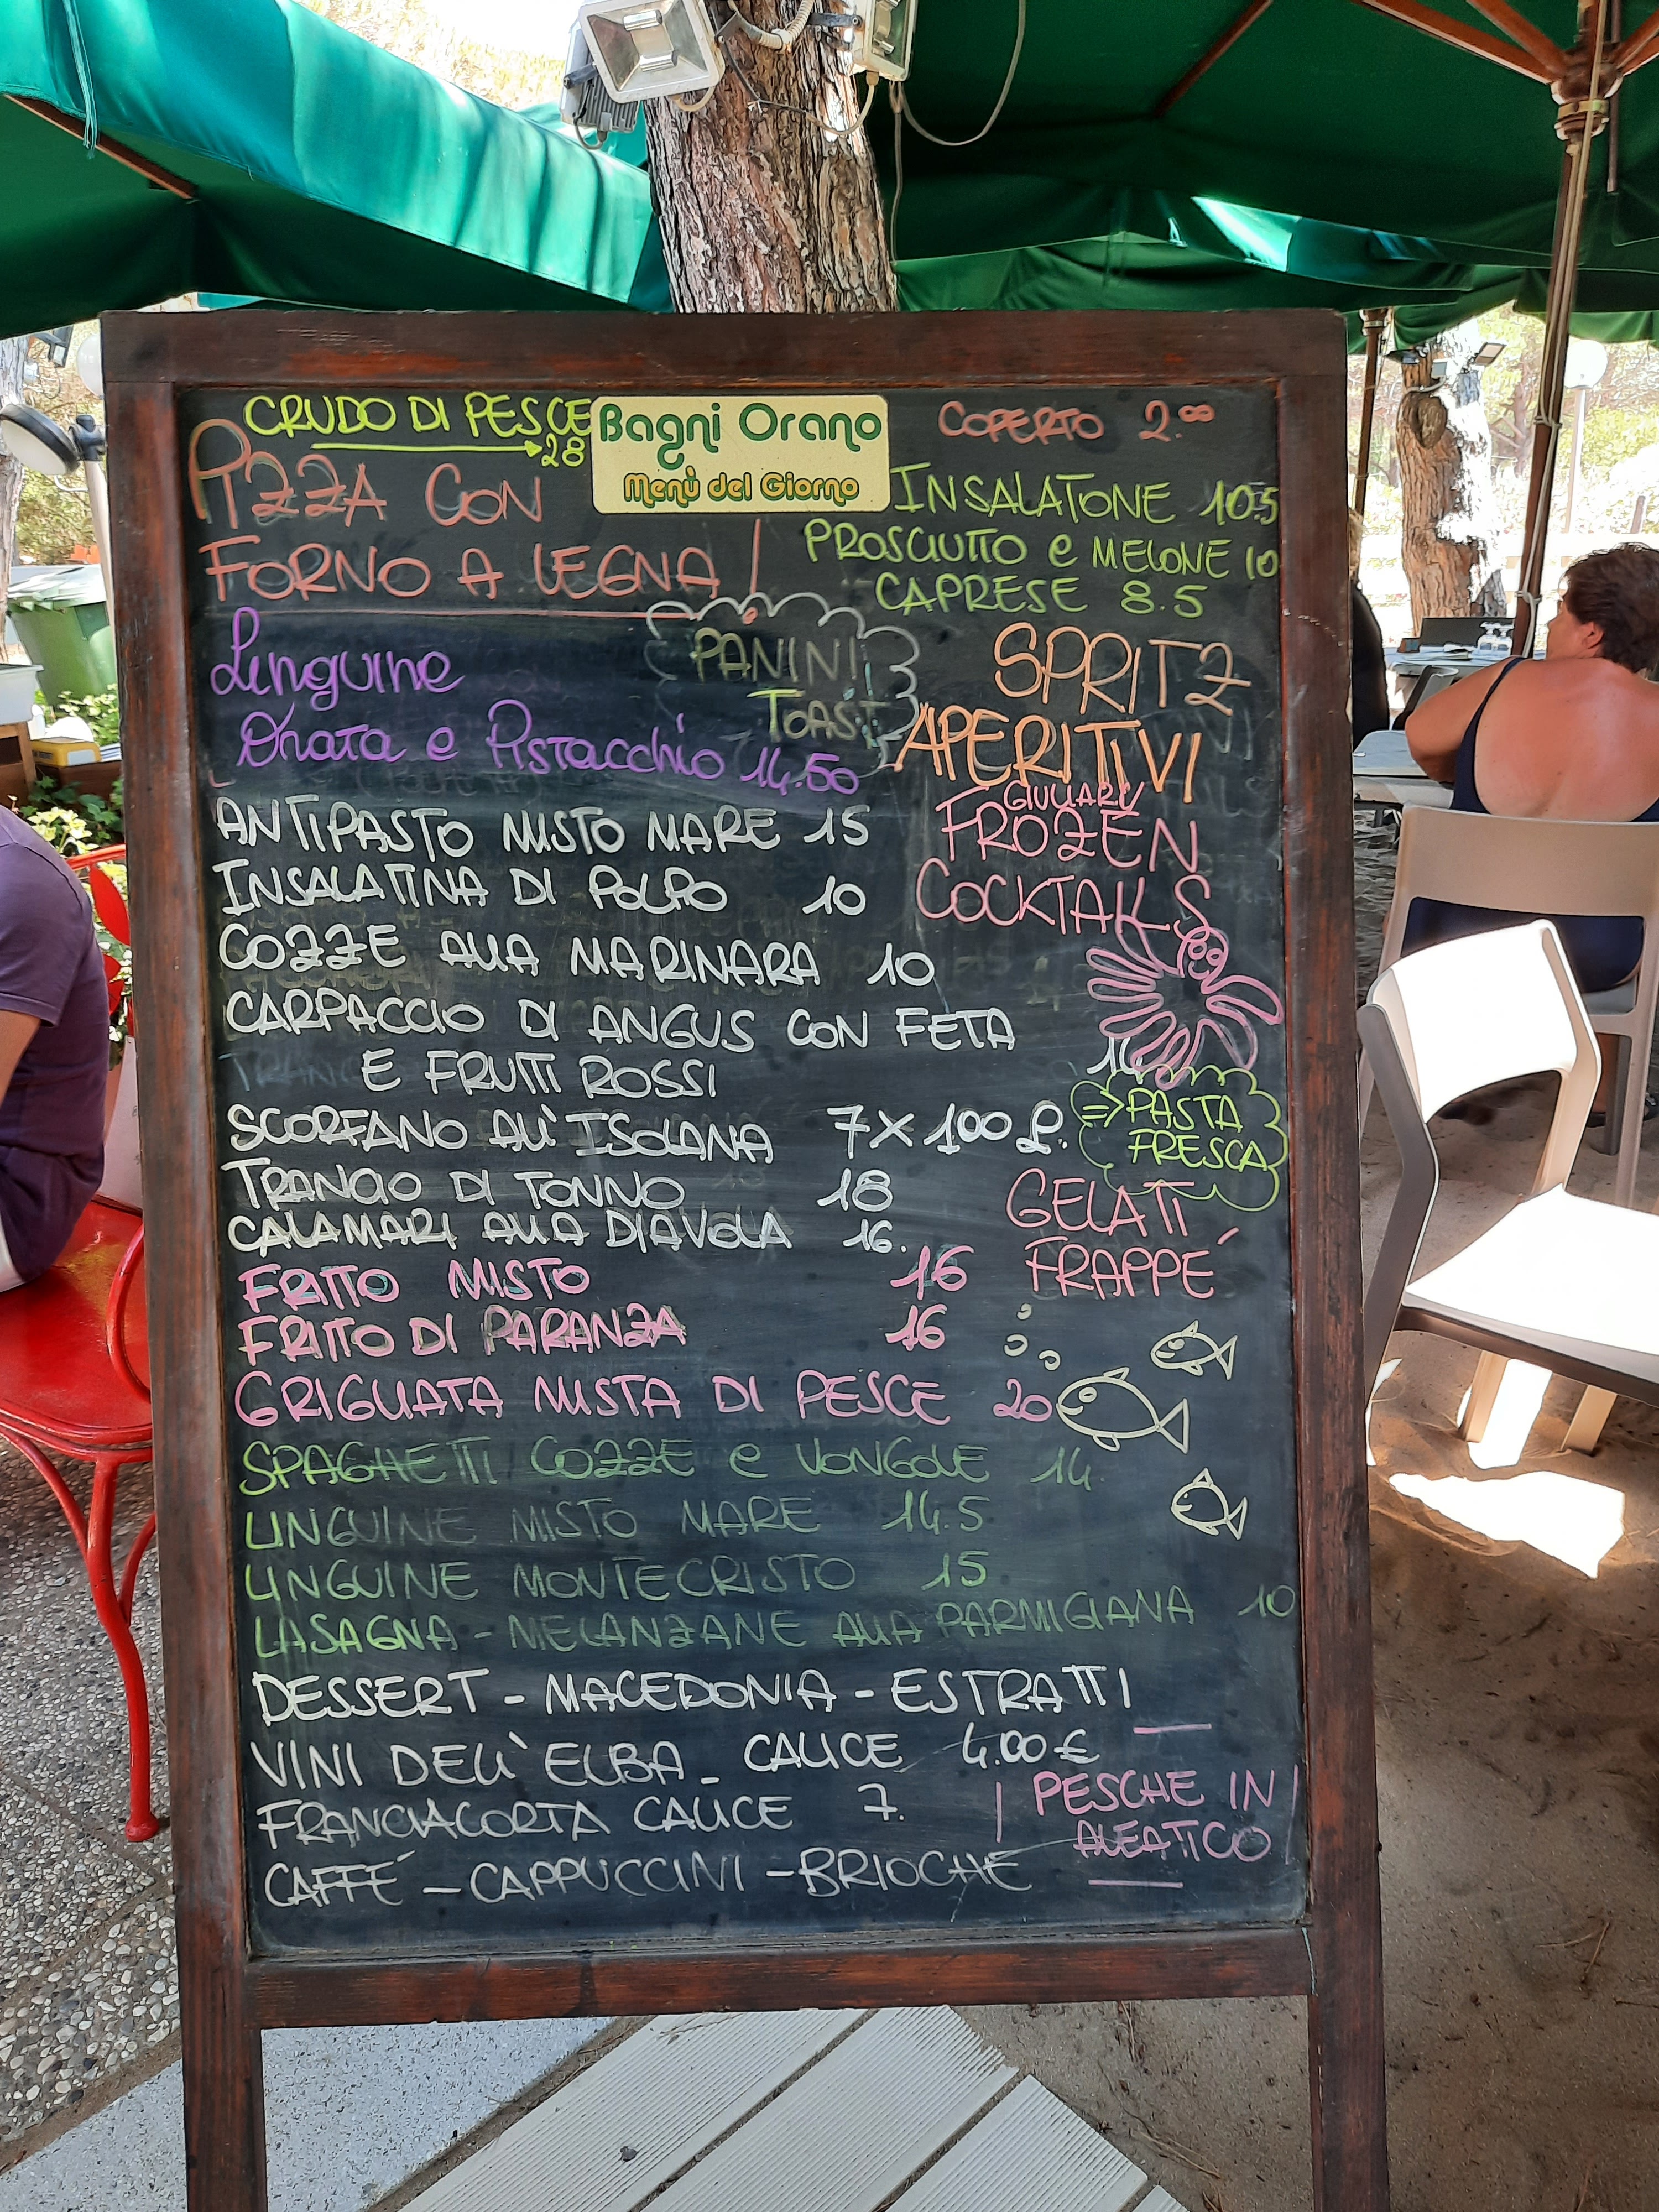 CRUDO DI PESCE
28
Bagni Orano
Menù del Giorno
COPERTO 2.00
PIZZA CON
FORNO A LEGNA!
INSALATONE 10.5
PROSCIUTTO e MELONE 10
CAPRESE 8.5
Linguine
Orata e Pistacchio 14.50
PANINI
TOAST
SPRITZ
APERITIVI
FROZEN
COCKTAILS
ANTIPASTO MISTO MARE 15
INSALATINA DI POLPO 10
COZZE ALLA MARINARA 10
CARPACCIO DI ANGUS CON FETA
E FRUTTI ROSSI
SCORFANO ALL'ISOLANA 7 x 100 g.
=> PASTA
FRESCA
TRANCIO DI TONNO 18
CALAMARI ALLA DIAVOLA 16.
GELATI
FRAPPE'
FRITTO MISTO 16
FRITTO DI PARANZA 16
GRIGLIATA MISTA DI PESCE 20
SPAGHETTI COZZE e VONGOLE 14
LINGUINE MISTO MARE 14.5
LINGUINE MONTECRISTO 15
LASAGNA - MELANZANE ALLA PARMIGIANA 10
DESSERT - MACEDONIA - ESTRATTI
VINI DELL'ELBA - CALICE 4.00 €
FRANCIACORTA CALICE 7.
CAFFE' - CAPPUCCINI - BRIOCHE
PESCHE IN
ALEATICO